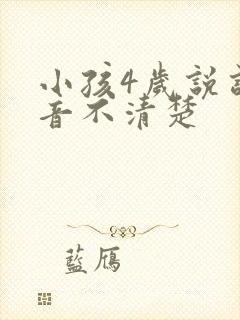 小孩4歲說
音不清楚
藍鴈